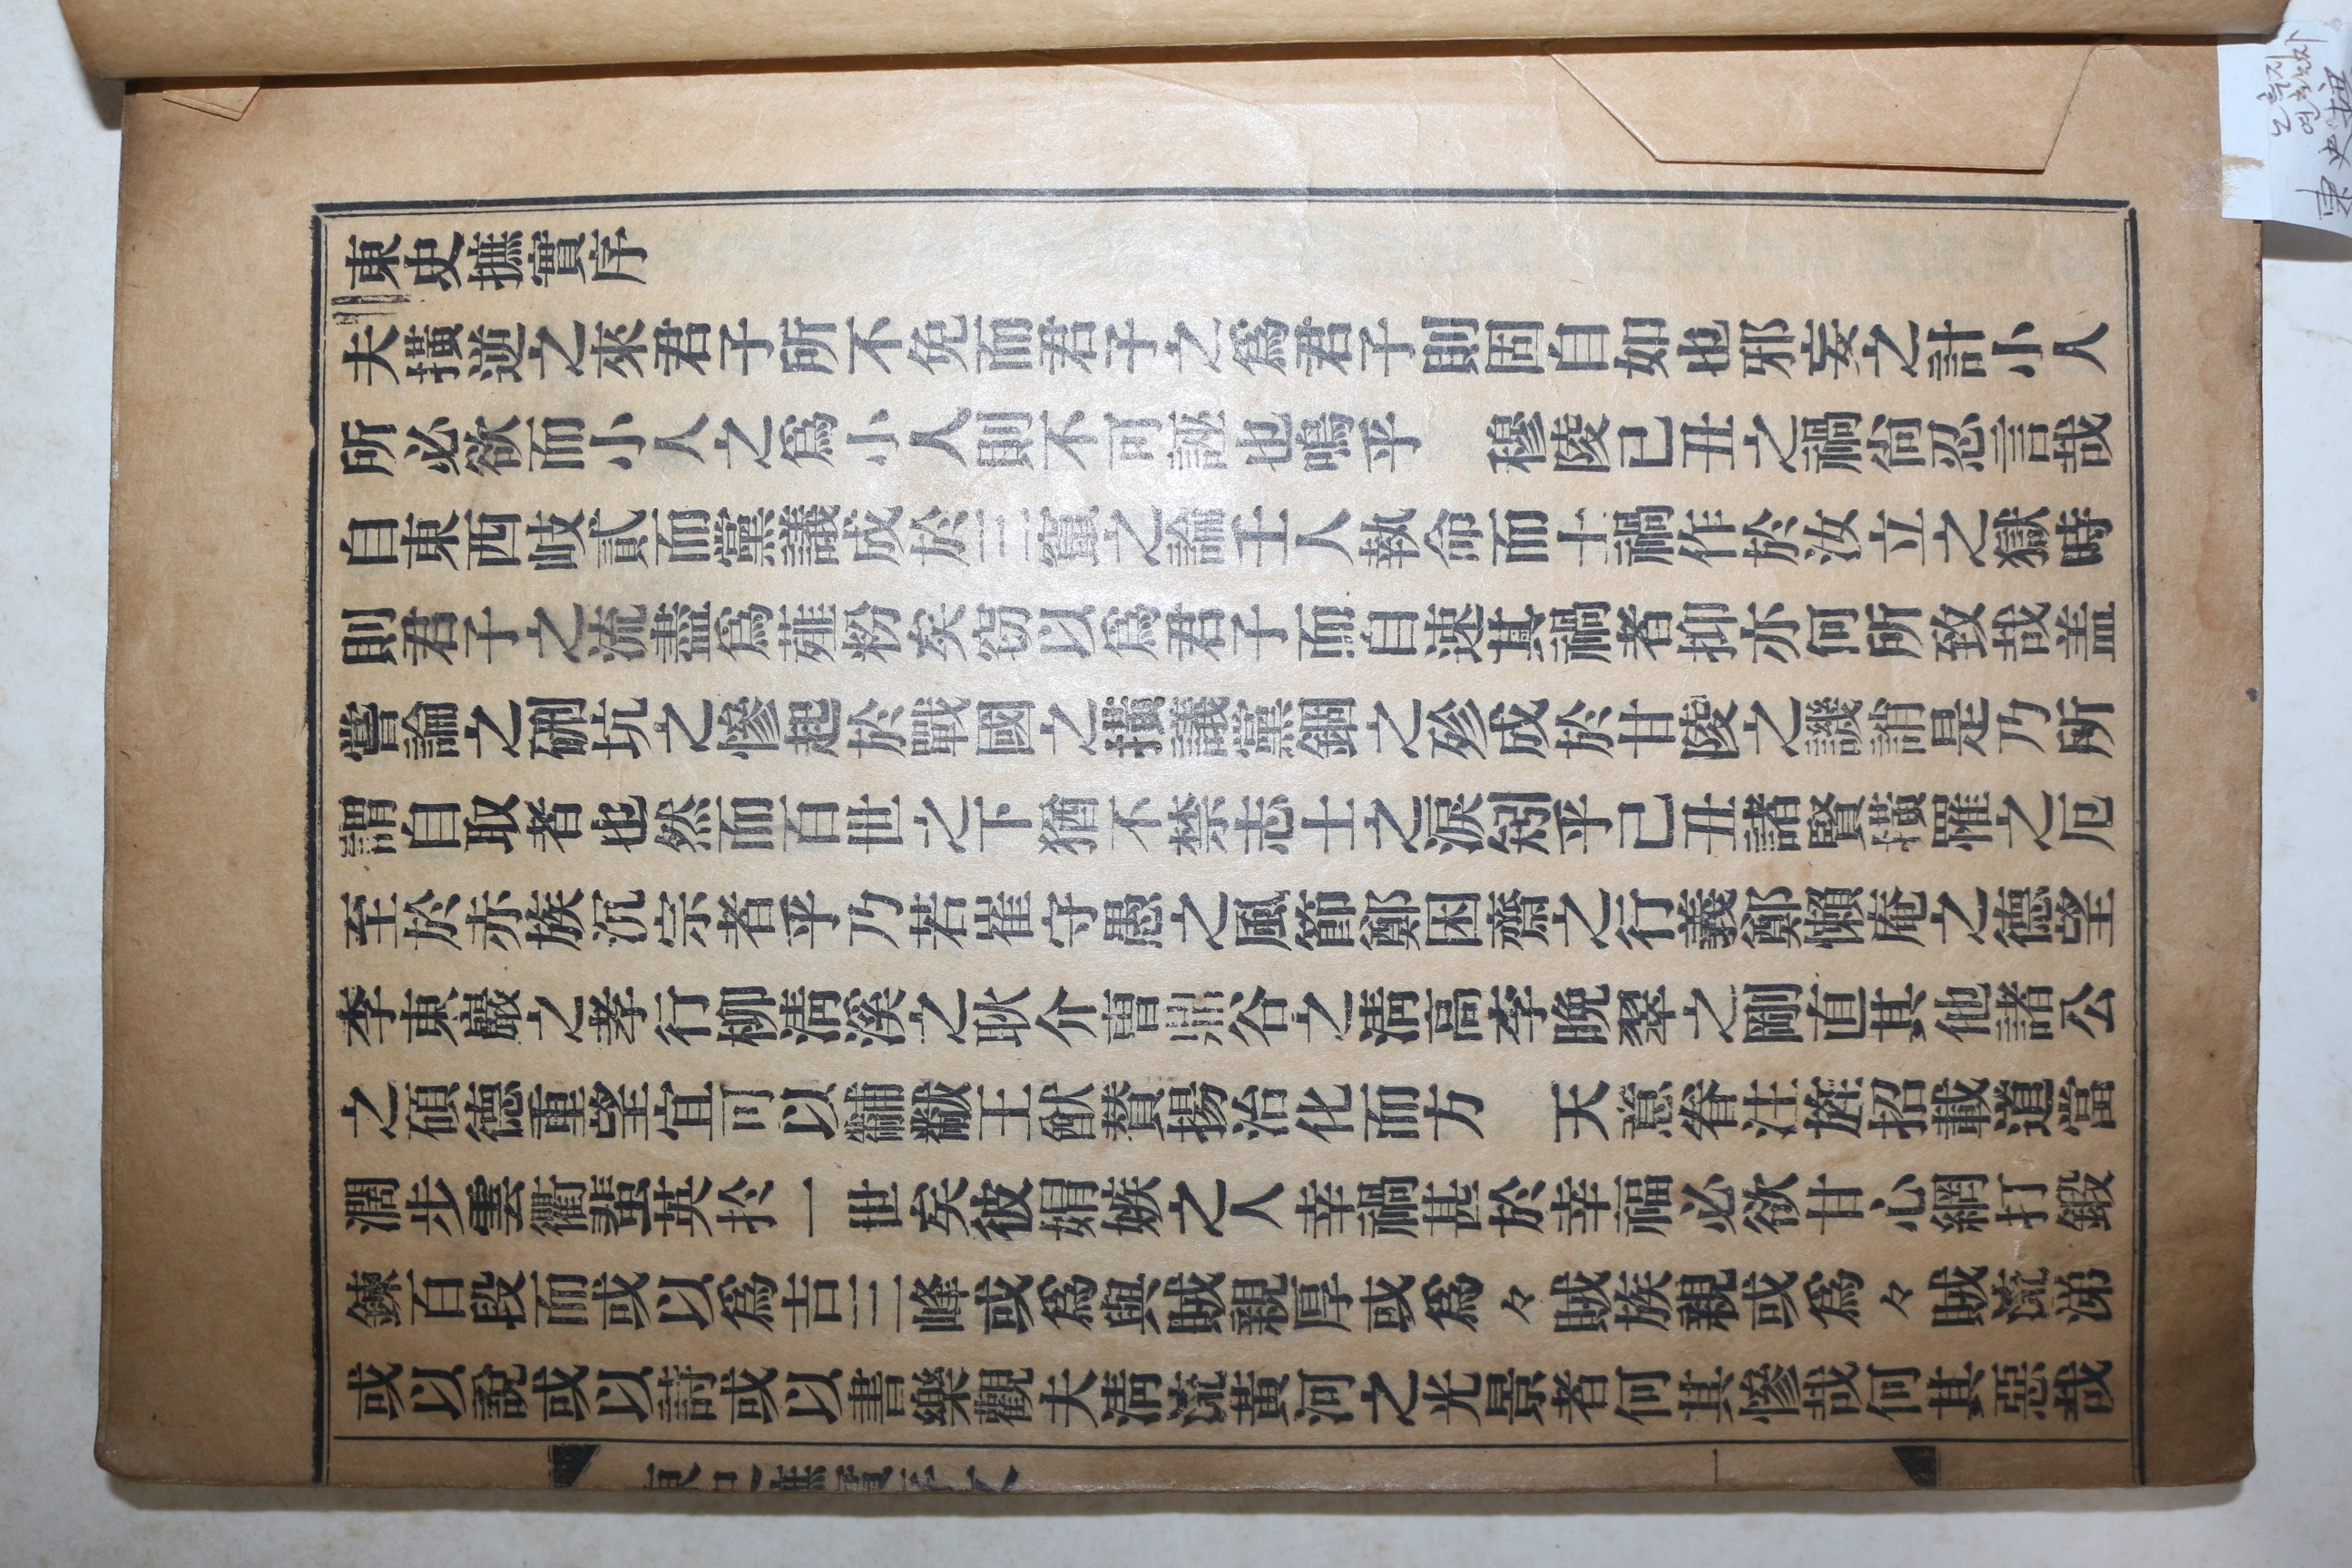 東史摭實序
夫撗逆之來君子所不免而君子之爲君子則固自如也邪妄之計小人
所必欲而小人之爲小人則不可誣也嗚乎 穆陵已丑之禍尙忍言哉
自東西岐貳而黨議成於三竄之論壬人執命而士禍作於汝立之獄時
則君子之流盡爲薤粉矣窃以爲君子而自速其禍者抑亦何所致哉盖
嘗論之硎坑之慘起於戰國之撗議黨錮之殄成於甘陵之譏誚是乃所
謂自取者也然而百世之下猶不禁志士之淚矧乎己丑諸賢撗罹之厄
至於赤族沉宗者乎乃若崔守愚之風節鄭困齋之行義鄭懶庵之德望
李東巖之孝行柳淸溪之耿介曺鼎谷之淸高李晩翠之剛直其他諸公
之碩德重望宜可以黼黻王猷賛揚治化而方 天意眷注旌招載道當
濶步雲衢蜚英扵一世矣彼娟嫉之人幸禍甚於幸福必欲甘心網打鍛
鍊百段而或以爲吉三峰或爲與賊親厚或爲々賊族親或爲々賊流涕
或以說或以詩或以書樂觀夫淸流黃河之光景者何其慘哉何其惡哉
東史摭實序文
一
노촉지
東史摭